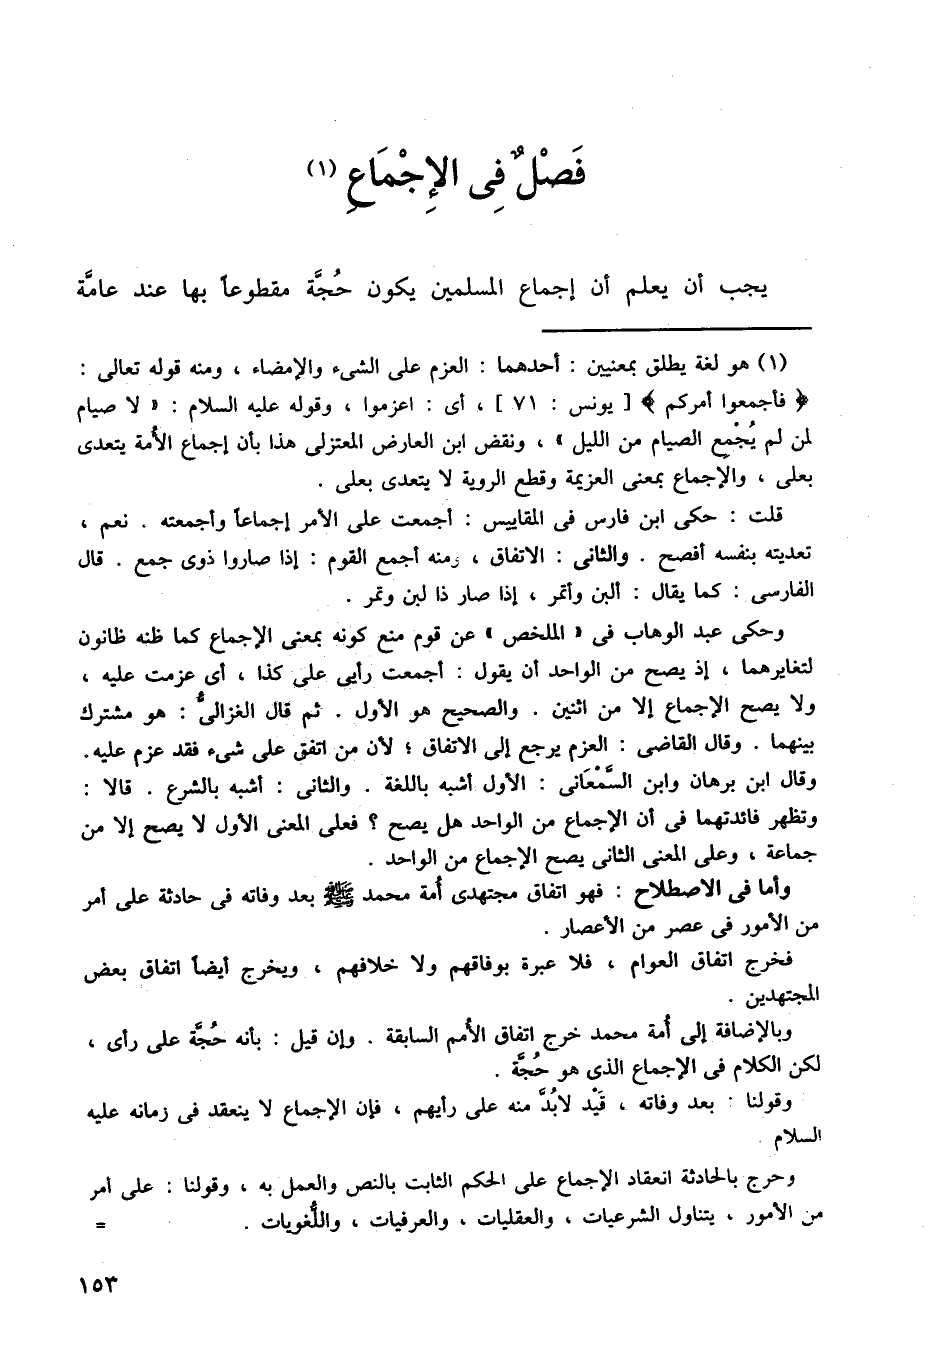 فَصْلٌ فِى الإِجْمَاعِ (١)
يجب أن يعلم أن إجماع المسلمين يكون حُجَّة مقطوعاً بها عند عامَّة
(١) هو لغة يطلق بمعنيين : أحدهما : العزم على الشىء والإمضاء ، ومنه قوله تعالى :
﴿ فأجمعوا أمركم ﴾ [ يونس : ٧١ ] ، أى : اعزموا ، وقوله عليه السلام : « لا صيام
لمن لم يُجْمِع الصيام من الليل » ، ونقض ابن العارض المعتزلى هذا بأن إجماع الأمة يتعدى
بعلى ، والإجماع بمعنى العزيمة وقطع الروية لا يتعدى بعلى .
قلت : حكى ابن فارس فى المقاييس : أجمعت على الأمر إجماعاً وأجمعته . نعم ،
تعديته بنفسه أفصح . والثانى : الاتفاق ، ومنه أجمع القوم : إذا صاروا ذوى جمع . قال
الفارسى : كما يقال : ألبن وأتمر ، إذا صار ذا لبن وتمر .
وحكى عبد الوهاب فى « الملخص » عن قوم منع كونه بمعنى الإجماع كما ظنه ظانون
لتغايرهما ، إذ يصح من الواحد أن يقول : أجمعت رأيى على كذا ، أى عزمت عليه ،
ولا يصح الإجماع إلا من اثنين . والصحيح هو الأول . ثم قال الغزالىُّ : هو مشترك
بينهما . وقال القاضى : العزم يرجع إلى الاتفاق ؛ لأن من اتفق على شىء فقد عزم عليه.
وقال ابن برهان وابن السَّمْعَانى : الأول أشبه باللغة . والثانى : أشبه بالشرع . قالا :
وتظهر فائدتهما فى أن الإجماع من الواحد هل يصح ؟ فعلى المعنى الأول لا يصح إلا من
جماعة ، وعلى المعنى الثانى يصح الإجماع من الواحد .
وأما فى الاصطلاح : فهو اتفاق مجتهدى أُمة محمد ﷺ بعد وفاته فى حادثة على أمر
من الأمور فى عصر من الأعصار .
فخرج اتفاق العوام ، فلا عبرة بوفاقهم ولا خلافهم ، ويخرج أيضاً اتفاق بعض
المجتهدين .
وبالإضافة إلى أُمة محمد خرج اتفاق الأُمم السابقة . وإن قيل : بأنه حُجَّة على رأى ،
لكن الكلام فى الإجماع الذى هو حُجَّة .
وقولنا : بعد وفاته ، قَيْد لابُدَّ منه على رأيهم ، فإن الإجماع لا ينعقد فى زمانه عليه
السلام .
وخرج بالحادثة انعقاد الإجماع على الحكم الثابت بالنص والعمل به ، وقولنا : على أمر
من الأمور ، يتناول الشرعيات ، والعقليات ، والعرفيات ، واللُّغويات . =
١٥٣